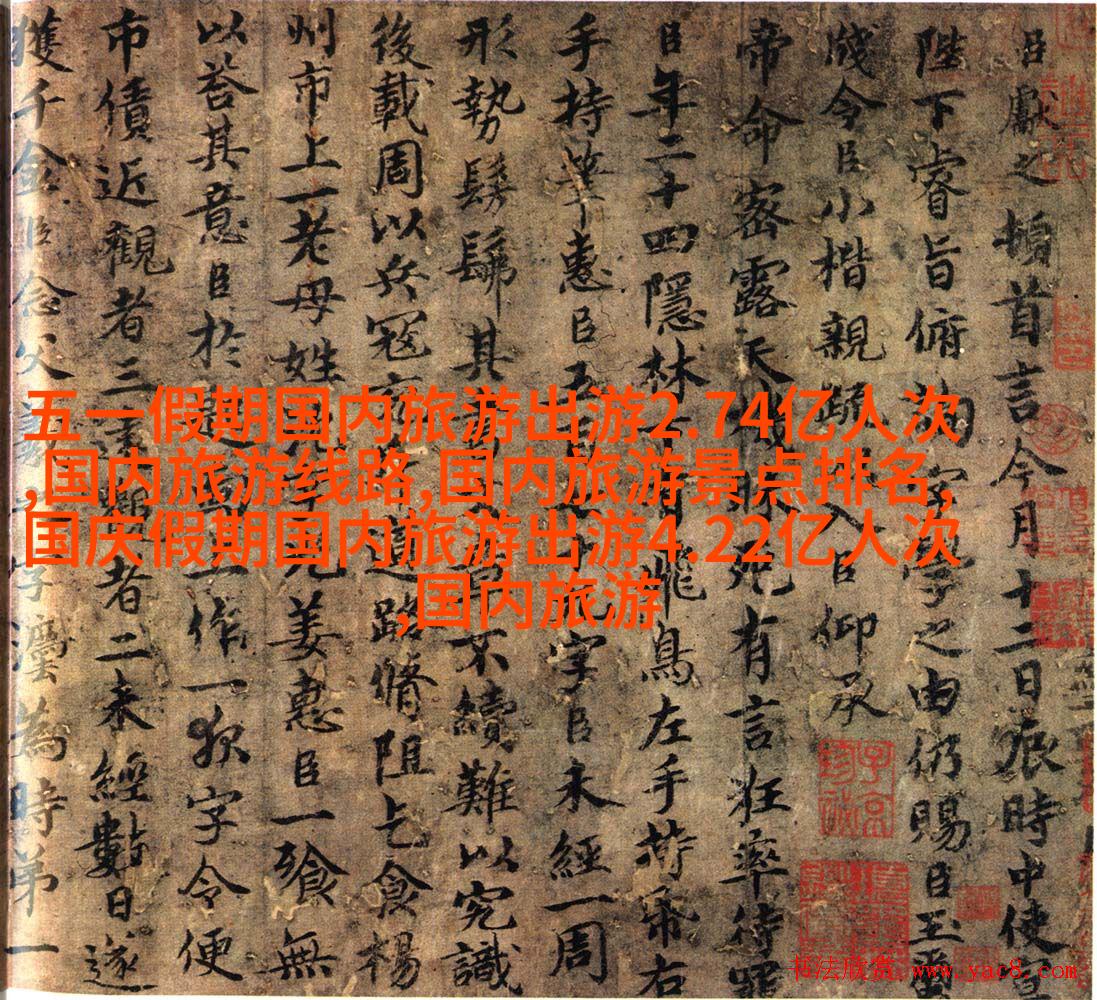 臣獻之頓首言今月十三日辰時中使宣
陛下睿旨俯字學之由仍賜臣玉
令臣小楷親入臣仰承
帝命密露天死有言言狂率待罪
臣年二十四隱林飛鳥左手持帛右
手持筆惠臣五字臣未經一周
形勢髣髴其不續難以究識
後載周以兵寇道路脩阻乞食楊
州市上一老母姓姜惠臣一飡無
以荅其意臣於作一夜字令便
市債近觀者三者二未經數日遂
獲千金臣念父字為時第一
五一假期国内旅游出游2.74亿人次
,国内旅游线路,国内旅游景点排名,
国庆假期国内旅游出游4.22亿人次
,国内旅游
书法欣赏 www.yac8.com